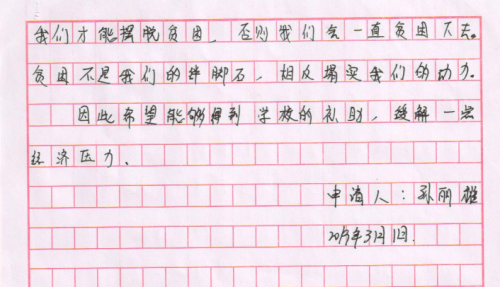 我们才能摆脱贫困，否则我们会一直贫困下去。
贫困不是我们的绊脚石，相反实我们的动力。
因此希望能够得到学校的补助，缓解一些
经济压力．
申请人：孙丽雄
年3月